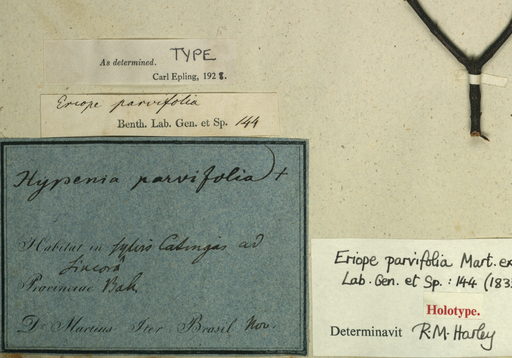 TYPE
As determined.
Carl Epling, 1928.
Eriope parvifolia
Benth. Lab. Gen. et Sp. 144
Hypenia parvifolia +
Habitat in sylvis Catingas ad
Sincorá
Provinciae Bah
Dr Martius Iter Brasil Nov.
Eriope parvifolia Mart. ex
Lab. Gen. et Sp.: 144 (183
Holotype.
Determinavit R.M. Harley